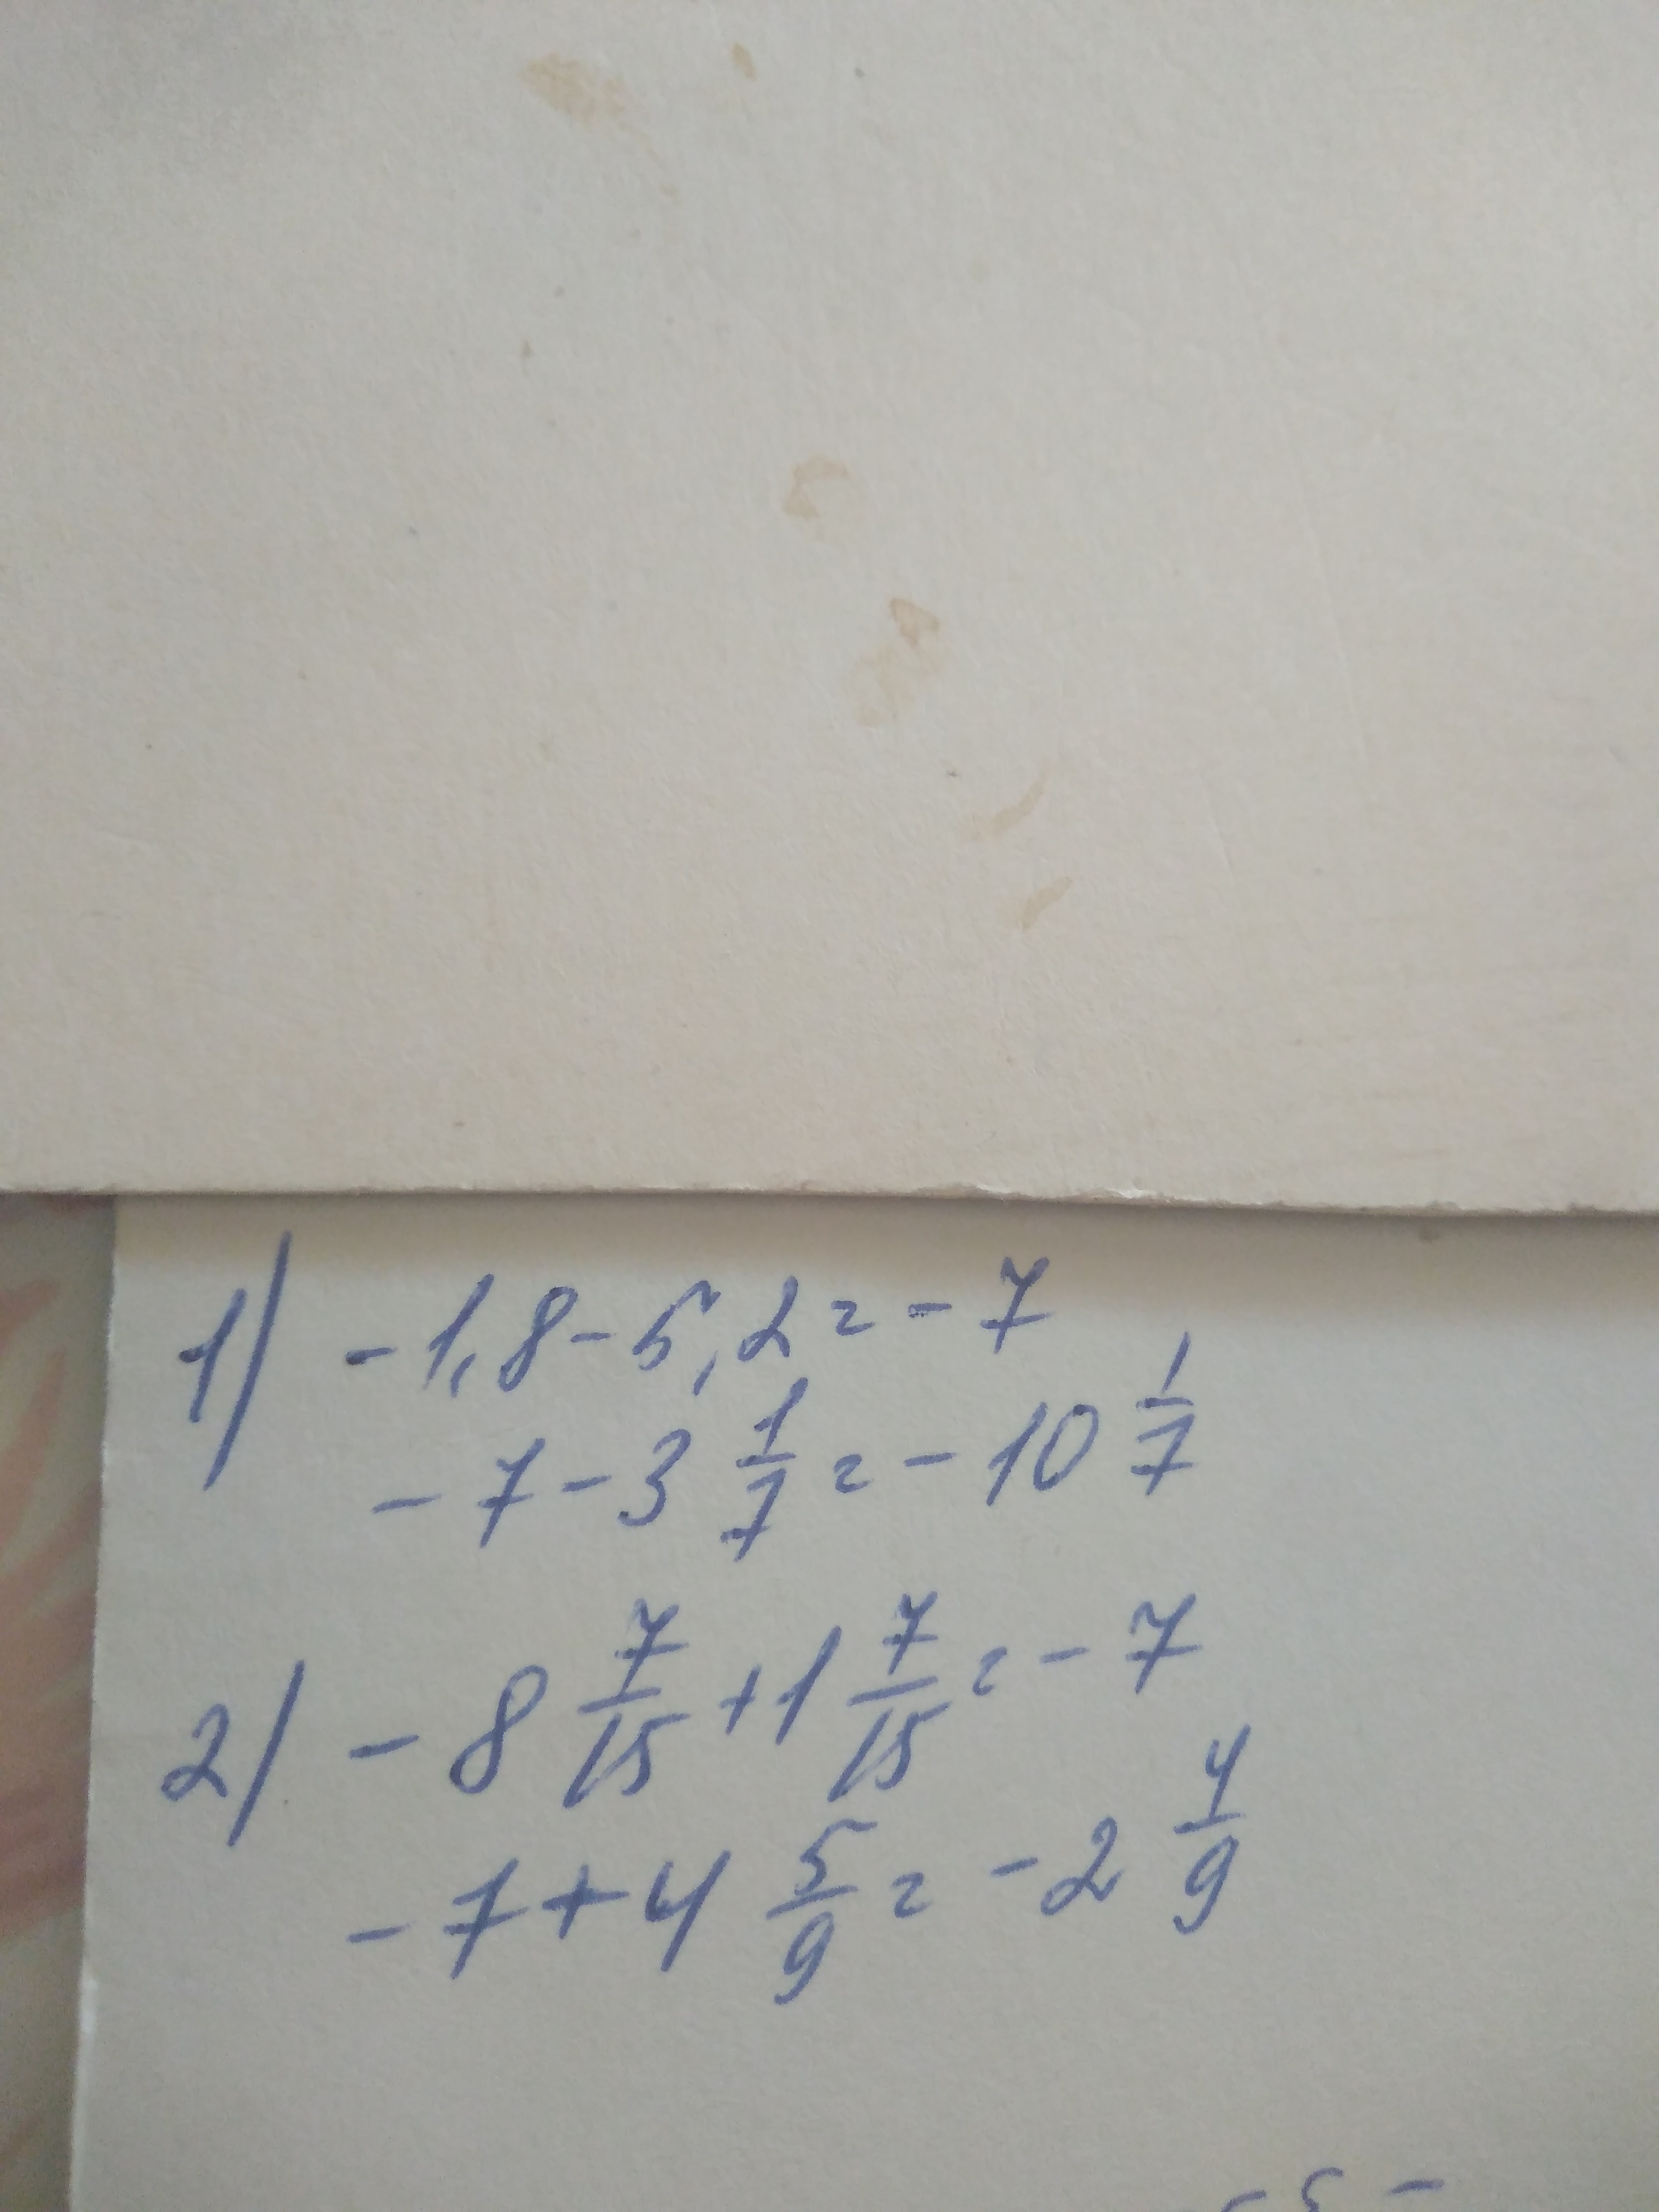 1) -1,8-5,2=-7
-7-3 1/7=-10 1/7
2) -8 7/15+1 7/15=-7
-7+4 5/9=-2 4/9